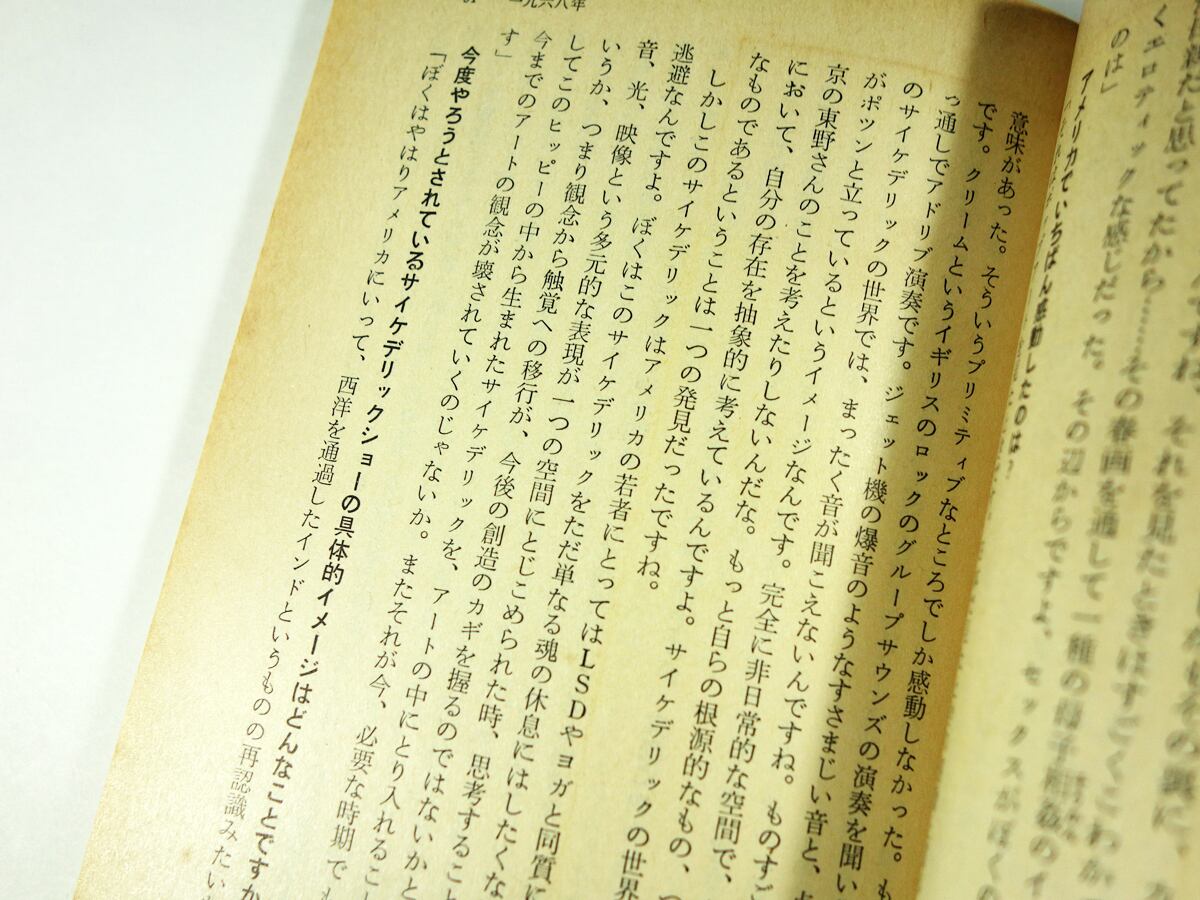 それを見たときはすごくこわか
だと思ってたから……その春画を通して一種の母子相姦のイ
くエロティックな感じだった。その辺からですよ、セックスがぼくの
のは」
アメリカでいちばん感動したのは?
一九六八年
意味があった。そういうプリミティブなところでしか感動しなかった。も
です。クリームというイギリスのロックのグループサウンズの演奏を聞い
っ通しでアドリブ演奏です。ジェット機の爆音のようなすさまじい音と、
のサイケデリックの世界では、まったく音が聞こえないんですね。ものすご
がポツンと立っているというイメージなんです。完全に非日常的な空間で、
京の東野さんのことを考えたりしないんだな。もっと自らの根源的なもの、つ
において、自分の存在を抽象的に考えているんですよ。サイケデリックの世界
なものであるということは一つの発見だったですね。
しかしこのサイケデリックはアメリカの若者にとってはLSDやヨガと同質に
逃避なんですよ。ぼくはこのサイケデリックをただ単なる魂の休息にはしたくな
音、光、映像という多元的な表現が一つの空間にとじこめられた時、思考すること
いうか、つまり観念から触覚への移行が、今後の創造のカギを握るのではないかと
してこのヒッピーの中から生まれたサイケデリックを、アートの中にとり入れること
今までのアートの観念が壊されていくのじゃないか。またそれが今、必要な時期でも
す」
今度やろうとされているサイケデリックショーの具体的イメージはどんなことですか
「ぼくはやはりアメリカにいって、西洋を通過したインドというものの再認識みたい